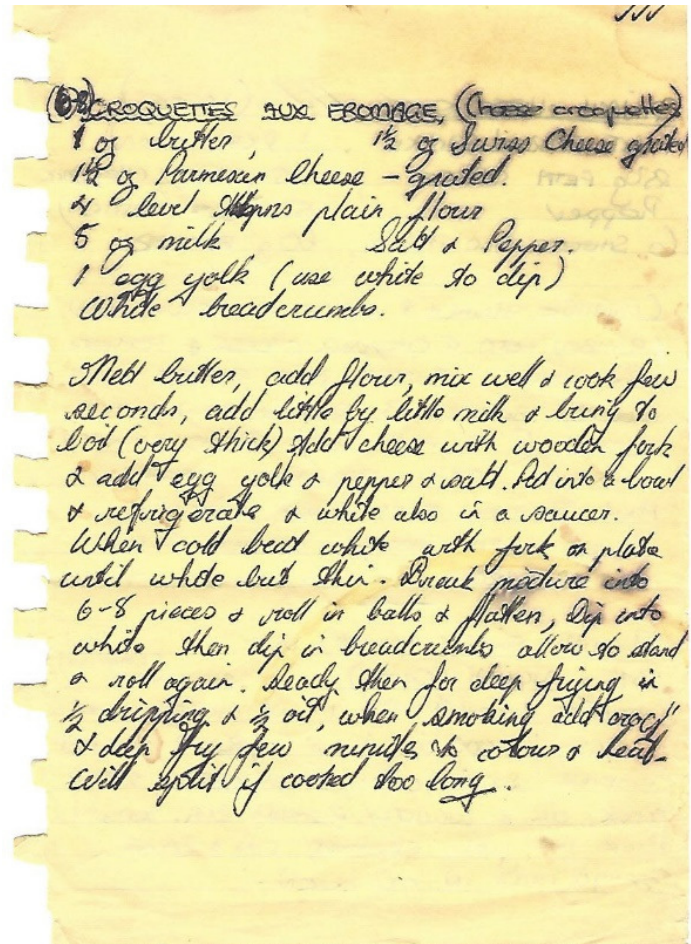 (6-8) CROQUETTES AUX FROMAGE, (Cheese croquettes)
1 oz butter, 1½ oz Swiss Cheese grated
1½ oz Parmesan Cheese - grated.
4 level tbspns plain flour
5 oz milk Salt & Pepper.
1 egg yolk (use white to dip)
White breadcrumbs.
Melt butter, add flour, mix well & cook few
seconds, add little by little milk & bring to
boil (very thick) Add cheese with wooden fork
& add egg yolk & pepper & salt. Put into a bowl
& refrigerate & white also in a saucer.
When cold beat white with fork on plate
until white but thin. Break mixture into
6-8 pieces & roll in balls & flatten, Dip into
white then dip in breadcrumbs allow to stand
& roll again. Ready then for deep frying in
½ dripping & ½ oil, when smoking add "croq"
& deep fry few minutes to colour & heat.
Will split if cooked too long.